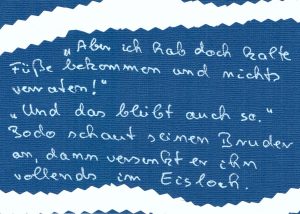 „Aber ich hab doch kalte
Füße bekommen und nichts
verraten!"
„Und das bleibt auch so."
Bodo schaut seinen Bruder
an, dann versenkt er ihn
vollends im Eisloch.